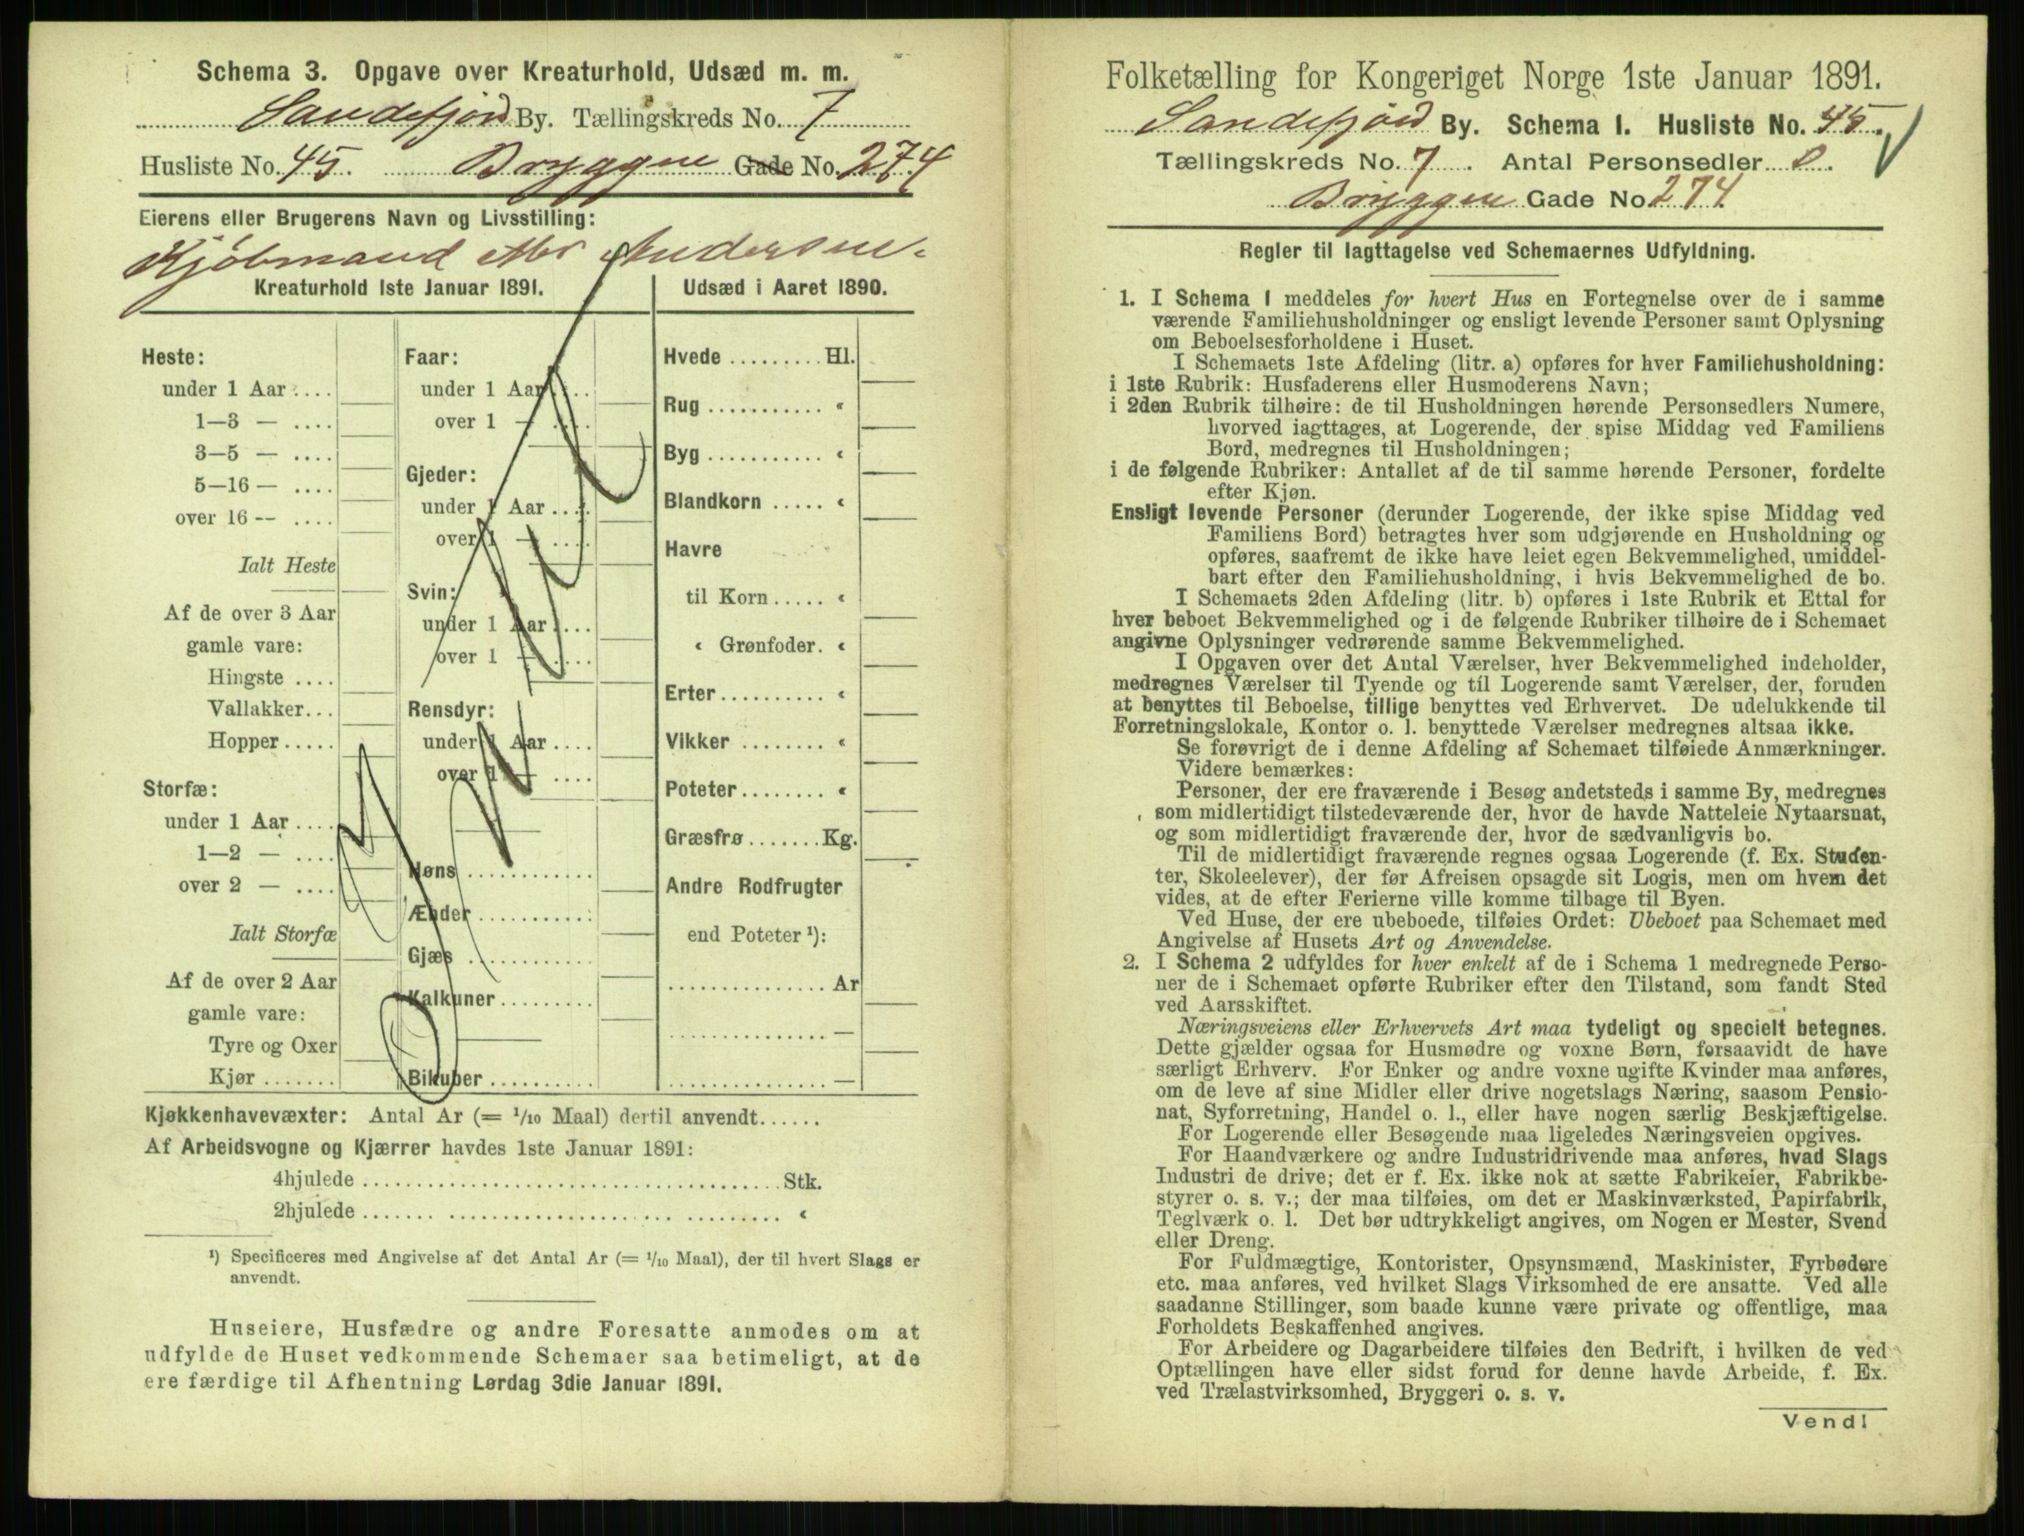 Schema 3. Opgave over Kreaturhold, Udsæd m. m.
Sandefjord By. Tællingskreds No. 7
Husliste No. 45. Bryggen Gade No. 274
Eierens eller Brugerens Navn og Livsstilling:
Kjøbmand Andersen.
Kreaturhold 1ste Januar 1891.
Heste:
under 1 Aar ....
1—3 — ....
3—5 — ....
5—16 — ....
over 16 — ....
Ialt Heste
Af de over 3 Aar
gamle vare:
Hingste ....
Vallakker...
Hopper.....
Storfæ:
under 1 Aar ....
1—2 — ....
over 2 — ....
Ialt Storfæ
Af de over 2 Aar
gamle vare:
Tyre og Oxer
Kjør .......
Faar:
under 1 Aar ....
over 1 — ....
Gjeder:
under 1 Aar ....
over 1 — ....
Svin:
under 1 Aar ....
over 1 — ....
Rensdyr:
under 1 Aar ....
over 1 — ....
Høns ............
Ænder ...........
Gjæs ............
Kalkuner .........
Bikuber ..........
Udsæd i Aaret 1890.
Hvede ......... Hl.
Rug ........... «
Byg ............ «
Blandkorn ..... «
Havre
til Korn ..... «
« Grønfoder. «
Erter .......... «
Vikker ........ «
Poteter ........ «
Græsfrø ....... Kg.
Andre Rodfrugter
end Poteter ¹):
............... Ar
............... —
............... —
Kjøkkenhavevæxter: Antal Ar (= 1/10 Maal) dertil anvendt......
Af Arbeidsvogne og Kjærrer havdes 1ste Januar 1891:
4hjulede ........................................ Stk.
2hjulede ........................................ «
¹) Specificeres med Angivelse af det Antal Ar (= 1/10 Maal), der til hvert Slags er
anvendt.
Huseiere, Husfædre og andre Foresatte anmodes om at
udfylde de Huset vedkommende Schemaer saa betimeligt, at de
ere færdige til Afhentning Lørdag 3die Januar 1891.
Folketælling for Kongeriget Norge 1ste Januar 1891.
Sandefjord By. Schema 1. Husliste No. 45.
Tællingskreds No. 7. Antal Personsedler 0.
Bryggen Gade No 274
Regler til Iagttagelse ved Schemaernes Udfyldning.
1. I Schema 1 meddeles for hvert Hus en Fortegnelse over de i samme
værende Familiehusholdninger og ensligt levende Personer samt Oplysning
om Beboelsesforholdene i Huset.
I Schemaets 1ste Afdeling (litr. a) opføres for hver Familiehusholdning:
i 1ste Rubrik: Husfaderens eller Husmoderens Navn;
i 2den Rubrik tilhøire: de til Husholdningen hørende Personsedlers Numere,
hvorved iagttages, at Logerende, der spise Middag ved Familiens
Bord, medregnes til Husholdningen;
i de følgende Rubriker: Antallet af de til samme hørende Personer, fordelte
efter Kjøn.
Ensligt levende Personer (derunder Logerende, der ikke spise Middag ved
Familiens Bord) betragtes hver som udgjørende en Husholdning og
opføres, saafremt de ikke have leiet egen Bekvemmelighed, umiddel-
bart efter den Familiehusholdning, i hvis Bekvemmelighed de bo.
I Schemaets 2den Afdeling (litr. b) opføres i 1ste Rubrik et Ettal for
hver beboet Bekvemmelighed og i de følgende Rubriker tilhøire de i Schemaet
angivne Oplysninger vedrørende samme Bekvemmelighed.
I Opgaven over det Antal Værelser, hver Bekvemmelighed indeholder,
medregnes Værelser til Tyende og til Logerende samt Værelser, der, foruden
at benyttes til Beboelse, tillige benyttes ved Erhvervet. De udelukkende til
Forretningslokale, Kontor o. l. benyttede Værelser medregnes altsaa ikke.
Se forøvrigt de i denne Afdeling af Schemaet tilføiede Anmærkninger.
Videre bemærkes:
Personer, der ere fraværende i Besøg andetsteds i samme By, medregnes
som midlertidigt tilstedeværende der, hvor de havde Natteleie Nytaarsnat,
og som midlertidigt fraværende der, hvor de sædvanligvis bo.
Til de midlertidigt fraværende regnes ogsaa Logerende (f. Ex. Studen-
ter, Skoleelever), der før Afreisen opsagde sit Logis, men om hvem det
vides, at de efter Ferierne ville komme tilbage til Byen.
Ved Huse, der ere ubeboede, tilføies Ordet: Ubeboet paa Schemaet med
Angivelse af Husets Art og Anvendelse.
2. I Schema 2 udfyldes for hver enkelt af de i Schema 1 medregnede Perso-
ner de i Schemaet opførte Rubriker efter den Tilstand, som fandt Sted
ved Aarsskiftet.
Næringsveiens eller Erhvervets Art maa tydeligt og specielt betegnes.
Dette gjælder ogsaa for Husmødre og voxne Børn, forsaavidt de have
særligt Erhverv. For Enker og andre voxne ugifte Kvinder maa anføres,
om de leve af sine Midler eller drive nogetslags Næring, saasom Pensio-
nat, Syforretning, Handel o. l., eller have nogen særlig Beskjæftigelse.
For Logerende eller Besøgende maa ligeledes Næringsveien opgives.
For Haandværkere og andre Industridrivende maa anføres, hvad Slags
Industri de drive; det er f. Ex. ikke nok at sætte Fabrikeier, Fabrikbe-
styrer o. s. v.; der maa tilføies, om det er Maskinværksted, Papirfabrik,
Teglværk o. l. Det bør udtrykkeligt angives, om Nogen er Mester, Svend
eller Dreng.
For Fuldmægtige, Kontorister, Opsynsmænd, Maskinister, Fyrbødere
etc. maa anføres, ved hvilket Slags Virksomhed de ere ansatte. Ved alle
saadanne Stillinger, som baade kunne være private og offentlige, maa
Forholdets Beskaffenhed angives.
For Arbeidere og Dagarbeidere tilføies den Bedrift, i hvilken de ved
Optællingen have eller sidst forud for denne havde Arbeide, f. Ex.
ved Trælastvirksomhed, Bryggeri o. s. v.
Vend!